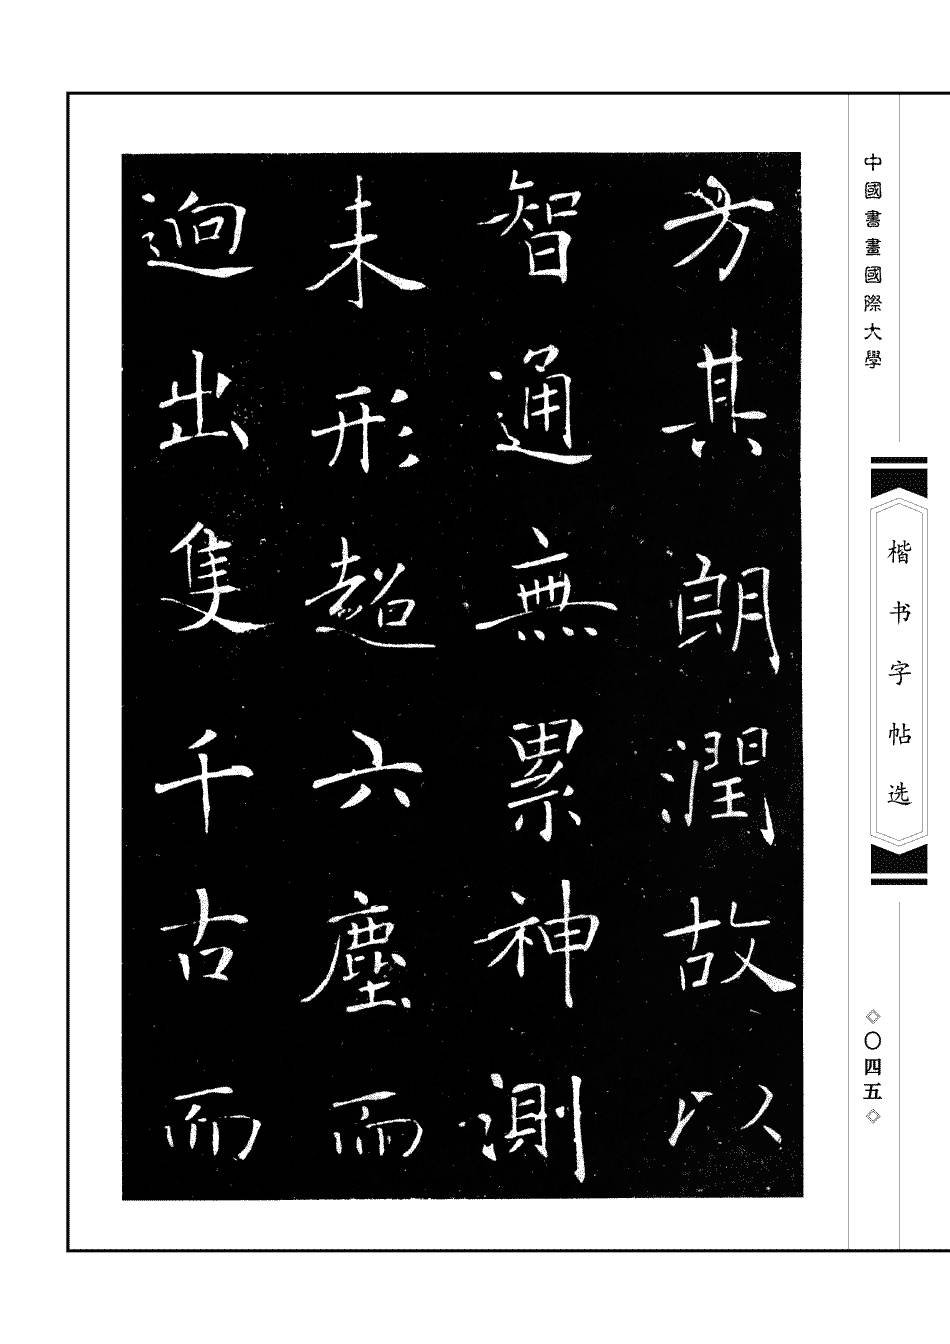 中國書畫國際大學
楷书字帖选
◇〇四五◇
方其朗潤故以
智通無累神測
未形超六塵而
迥出隻千古而